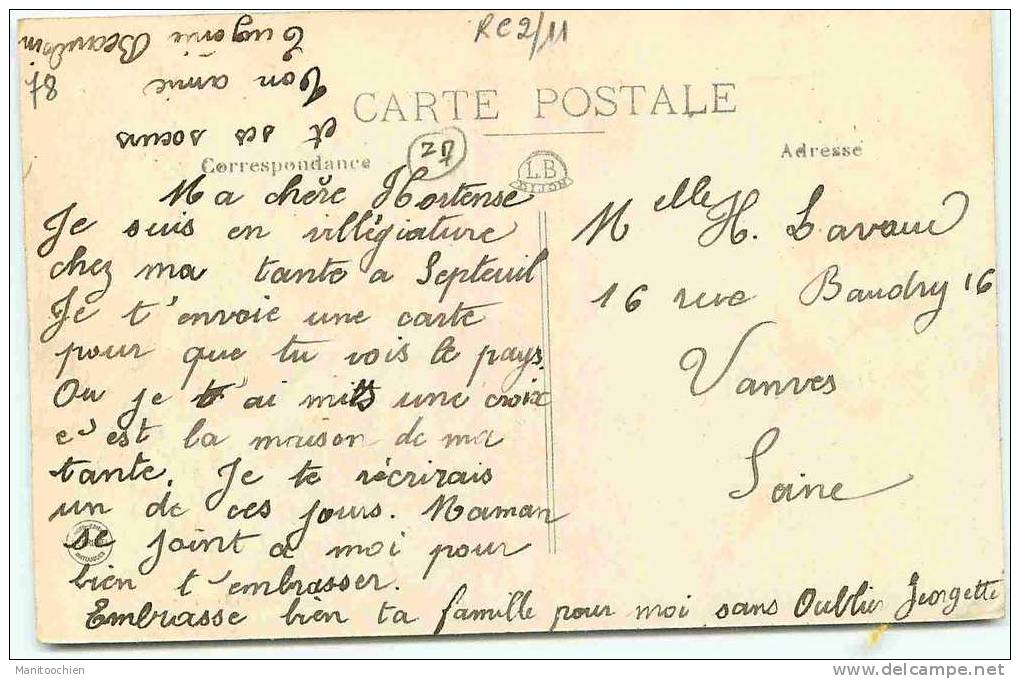 RC2/11
CARTE POSTALE
Correspondance
Adresse
L.B
DIJON
Ma chère Hortense
Je suis en villégiature
chez ma tante a Septeuil
Je t'envoie une carte
pour que tu vois le pays.
Ou je t'ai mits une croix
c'est la maison de ma
tante. Je te récrirais
un de ces jours. Maman
se joint a moi pour
bien t'embrasser.
Embrasse bien ta famille pour moi sans Oublier Georgette
et ses soeurs
Ton amie
Eugénie Beaudoin
87
Melle H. Lavaud
16 rue Baudry 16
Vanves
Seine
Manitoochien
www.delcampe.net